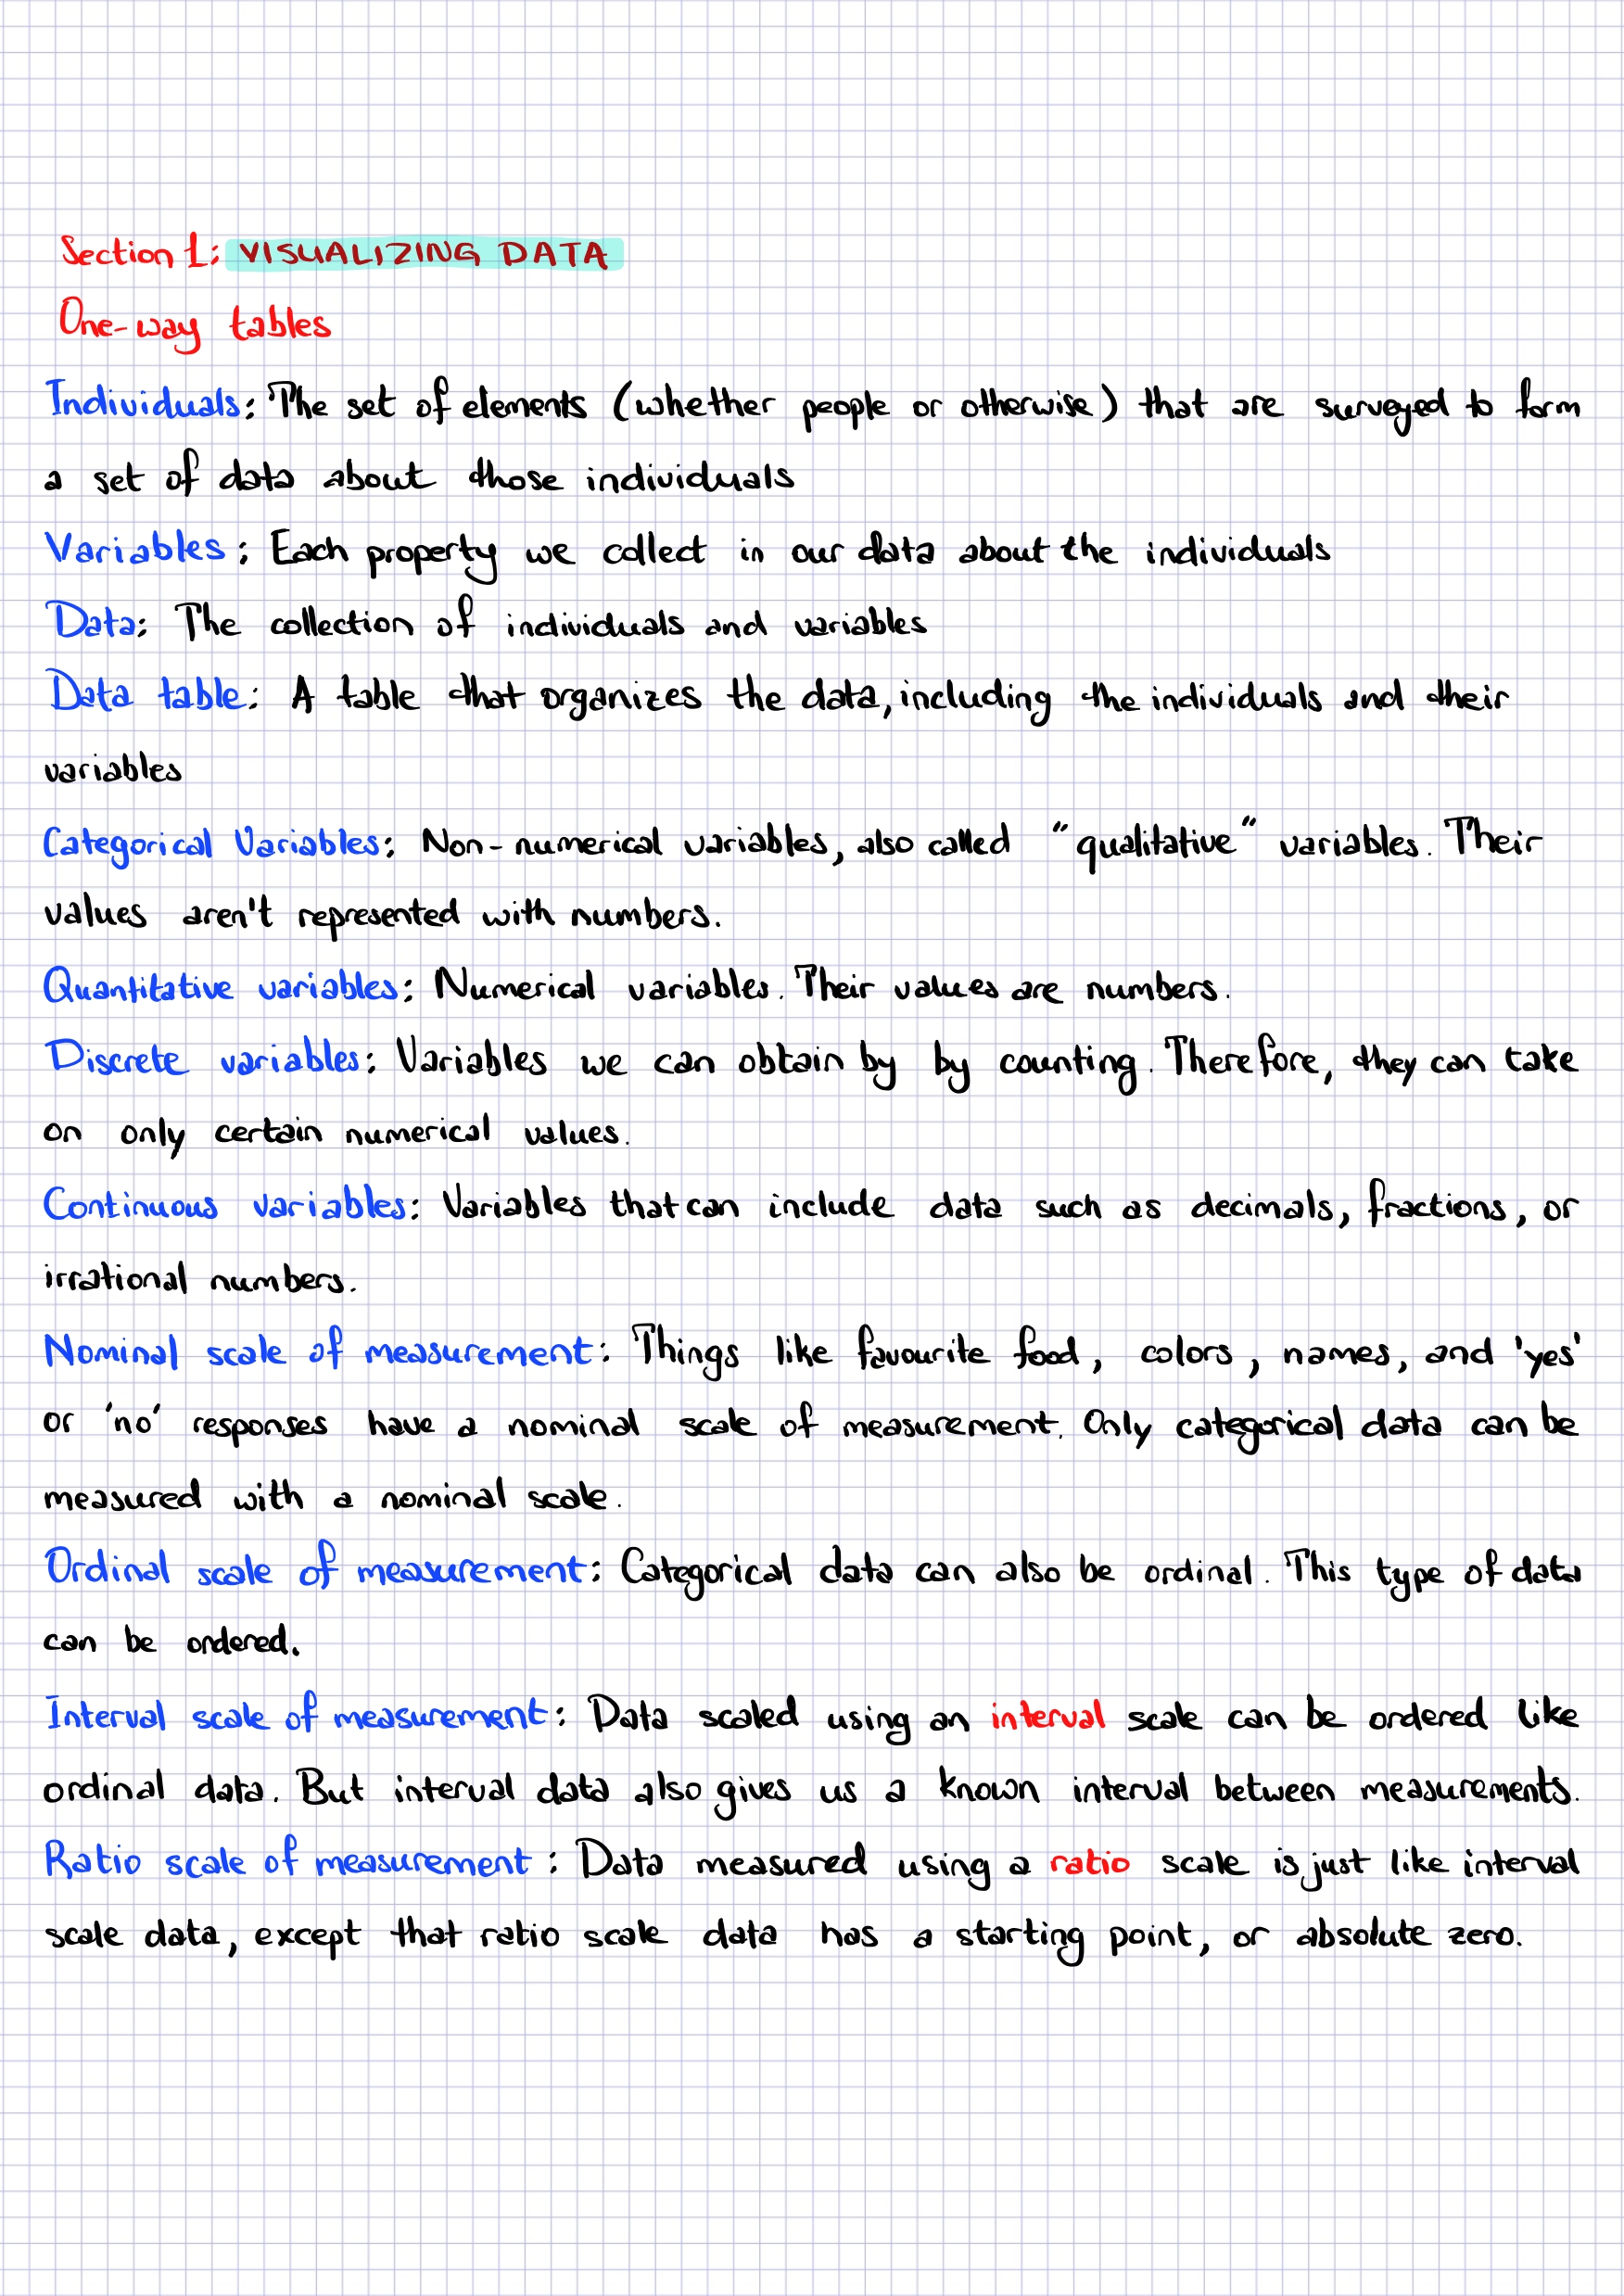 Section 1: VISUALIZING DATA
One-way tables
Individuals: The set of elements (whether people or otherwise) that are surveyed to form
a set of data about those individuals
Variables: Each property we collect in our data about the individuals
Data: The collection of individuals and variables
Data table: A table that organizes the data, including the individuals and their
variables
Categorical Variables: Non-numerical variables, also called "qualitative" variables. Their
values aren't represented with numbers.
Quantitative variables: Numerical variables. Their values are numbers.
Discrete variables: Variables we can obtain by by counting. Therefore, they can take
on only certain numerical values.
Continuous variables: Variables that can include data such as decimals, fractions, or
irrational numbers.
Nominal scale of measurement: Things like favourite food, colors, names, and 'yes'
or 'no' responses have a nominal scale of measurement. Only categorical data can be
measured with a nominal scale.
Ordinal scale of measurement: Categorical data can also be ordinal. This type of data
can be ordered.
Interval scale of measurement: Data scaled using an interval scale can be ordered like
ordinal data. But interval data also gives us a known interval between measurements.
Ratio scale of measurement: Data measured using a ratio scale is just like interval
scale data, except that ratio scale data has a starting point, or absolute zero.